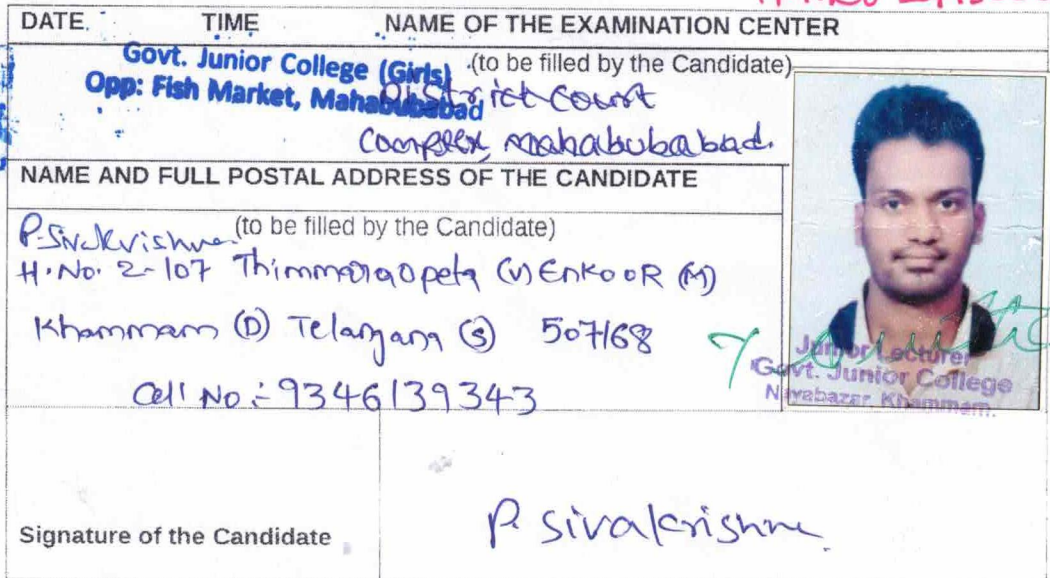 DATE. TIME NAME OF THE EXAMINATION CENTER
Govt. Junior College (Girls) (to be filled by the Candidate)
Opp: Fish Market, Mahabubabad
District Court
Complex, Mahabubabad.
NAME AND FULL POSTAL ADDRESS OF THE CANDIDATE
P. Sivakrishna (to be filled by the Candidate)
H.No. 2-107 Thimmaraopeta (V) ENKOOR (M)
Khammam (D) Telangana (S) 507168
Cell No:- 9346139343
Junior Lecturer
Govt. Junior College
Nayabazar, Khammam.
Signature of the Candidate P. Sivakrishna